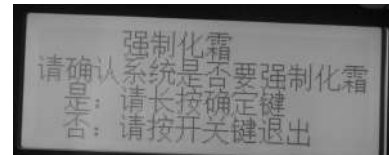 强制化霜
请确认系统是否要强制化霜
是：请长按确定键
否：请按开关键退出